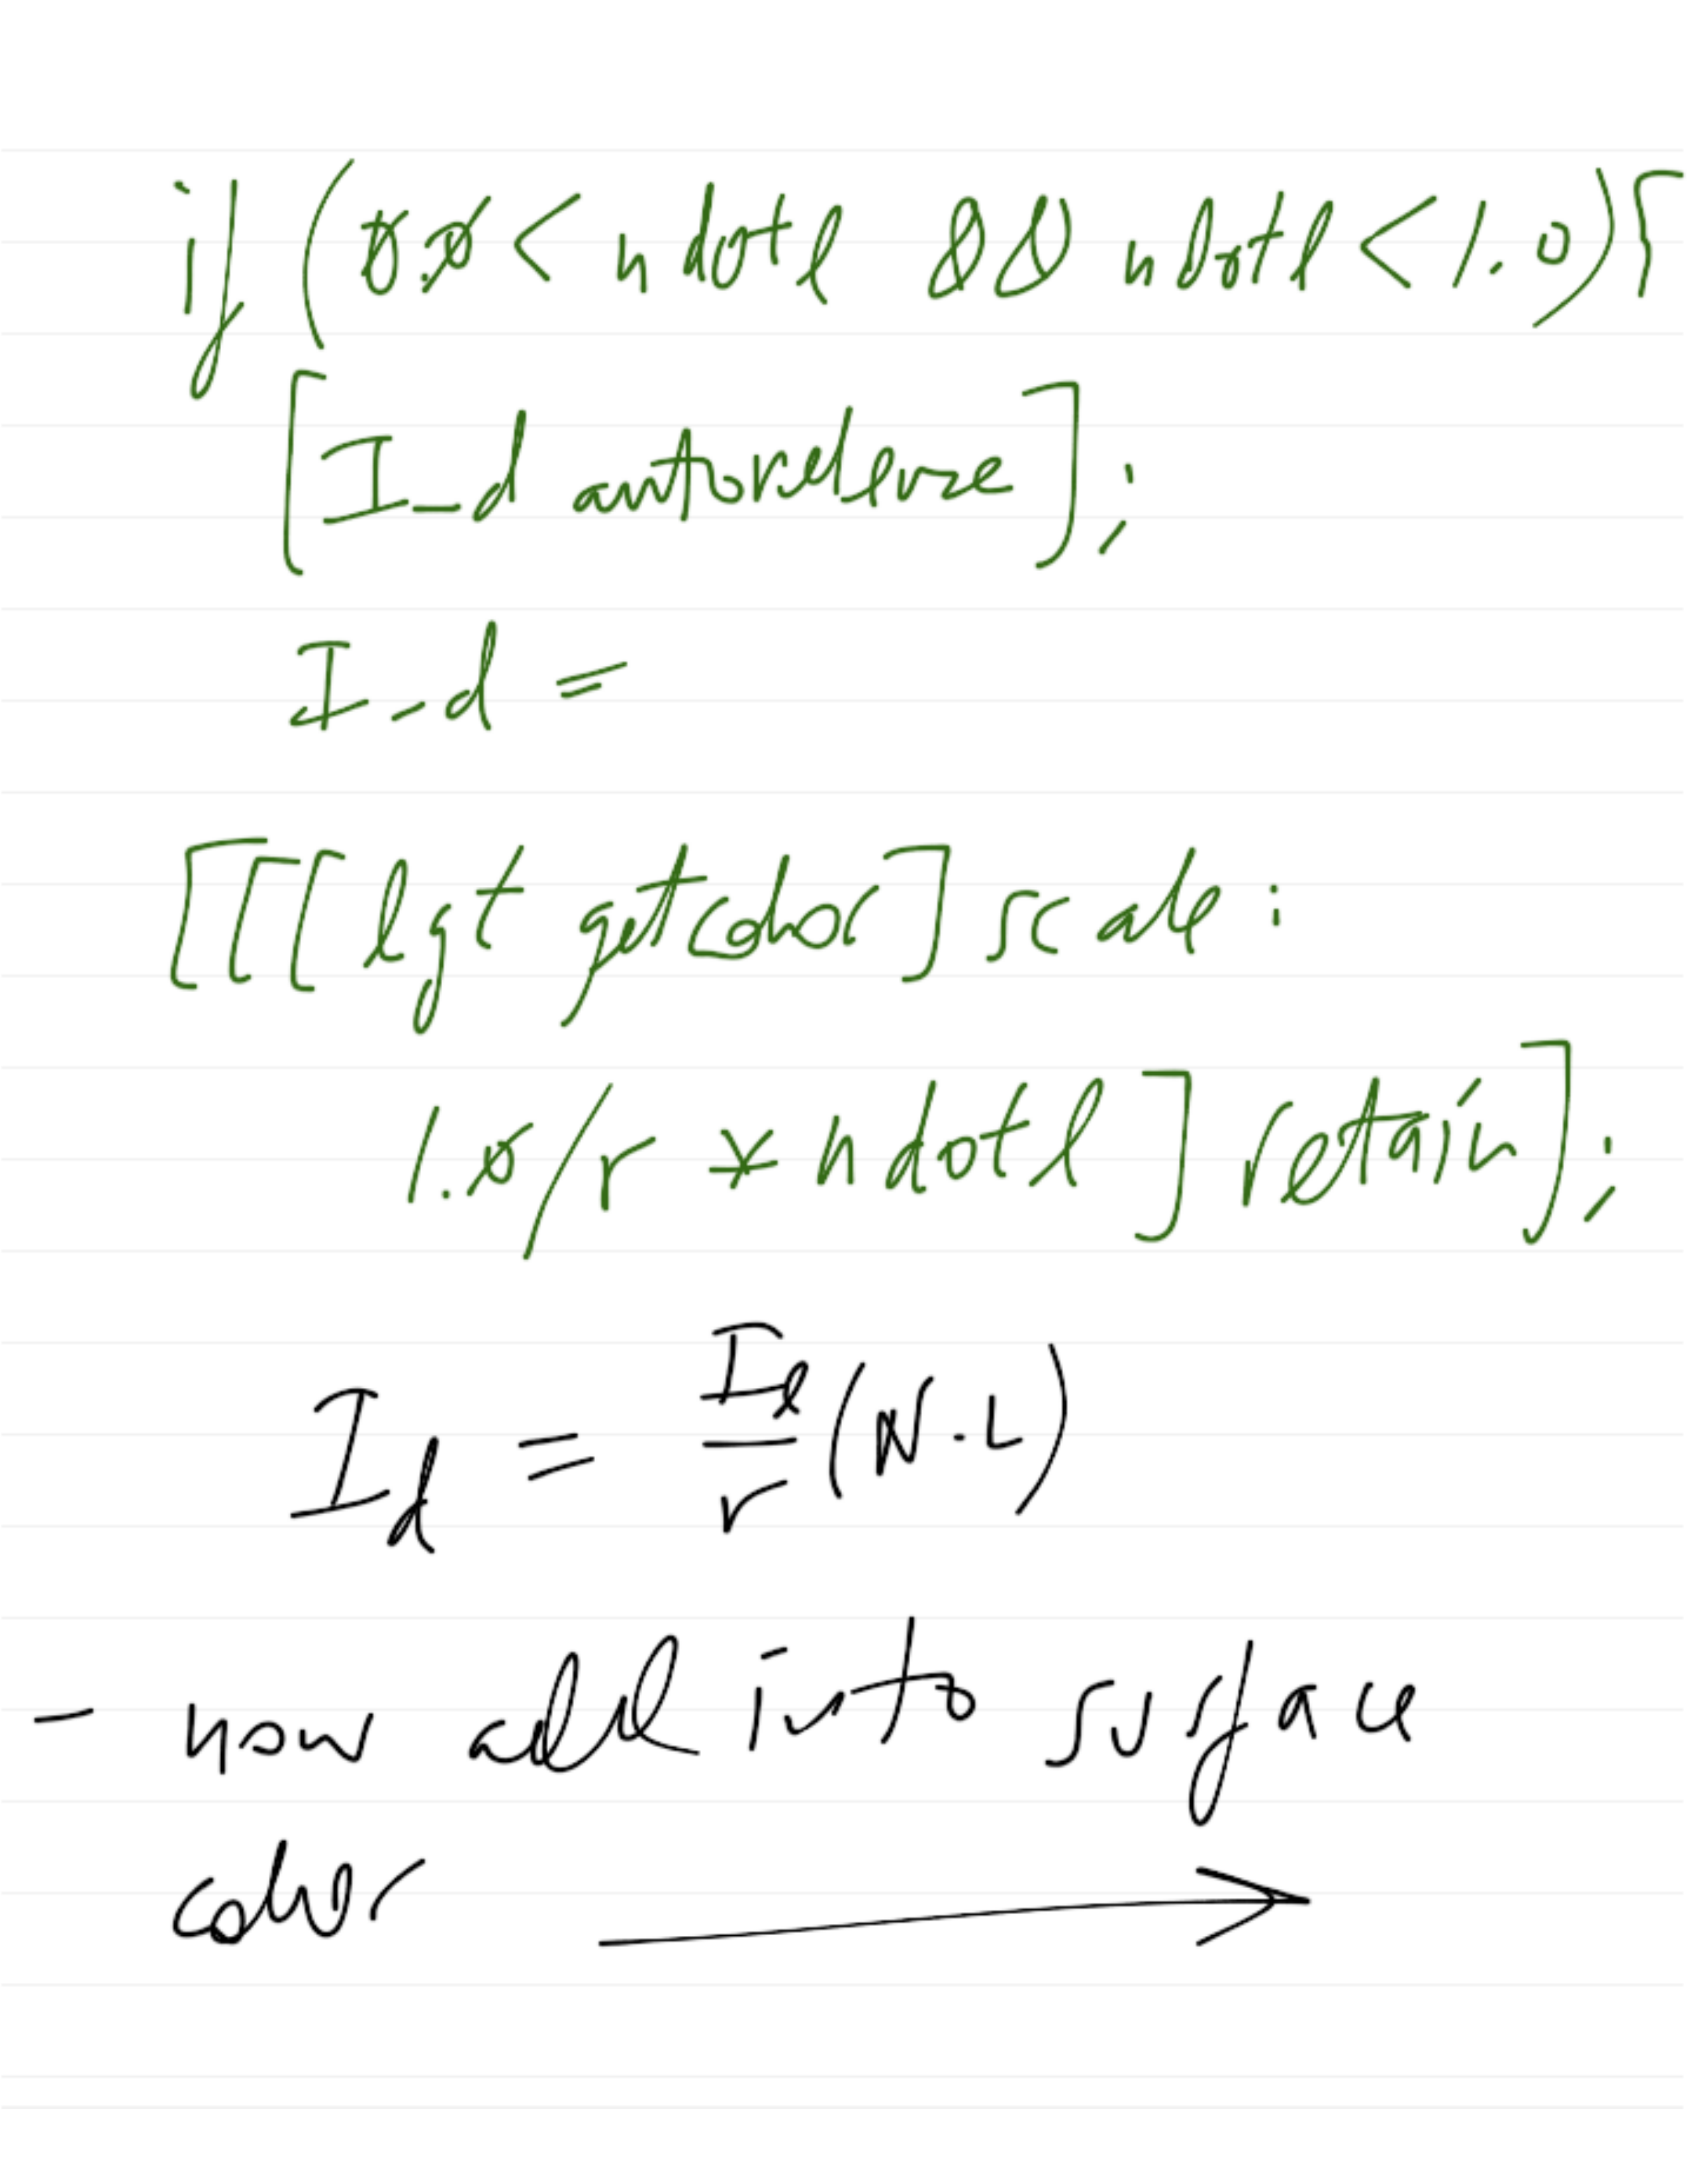 if (0.0 < ndotl && ndotl < 1.0) {
[I_d autorelease];
I_d =
[[[lgt getcolor] scale:
1.0/r * ndotl ] retain];
I_d = I_l/r (N.L)
- now add into surface
color →